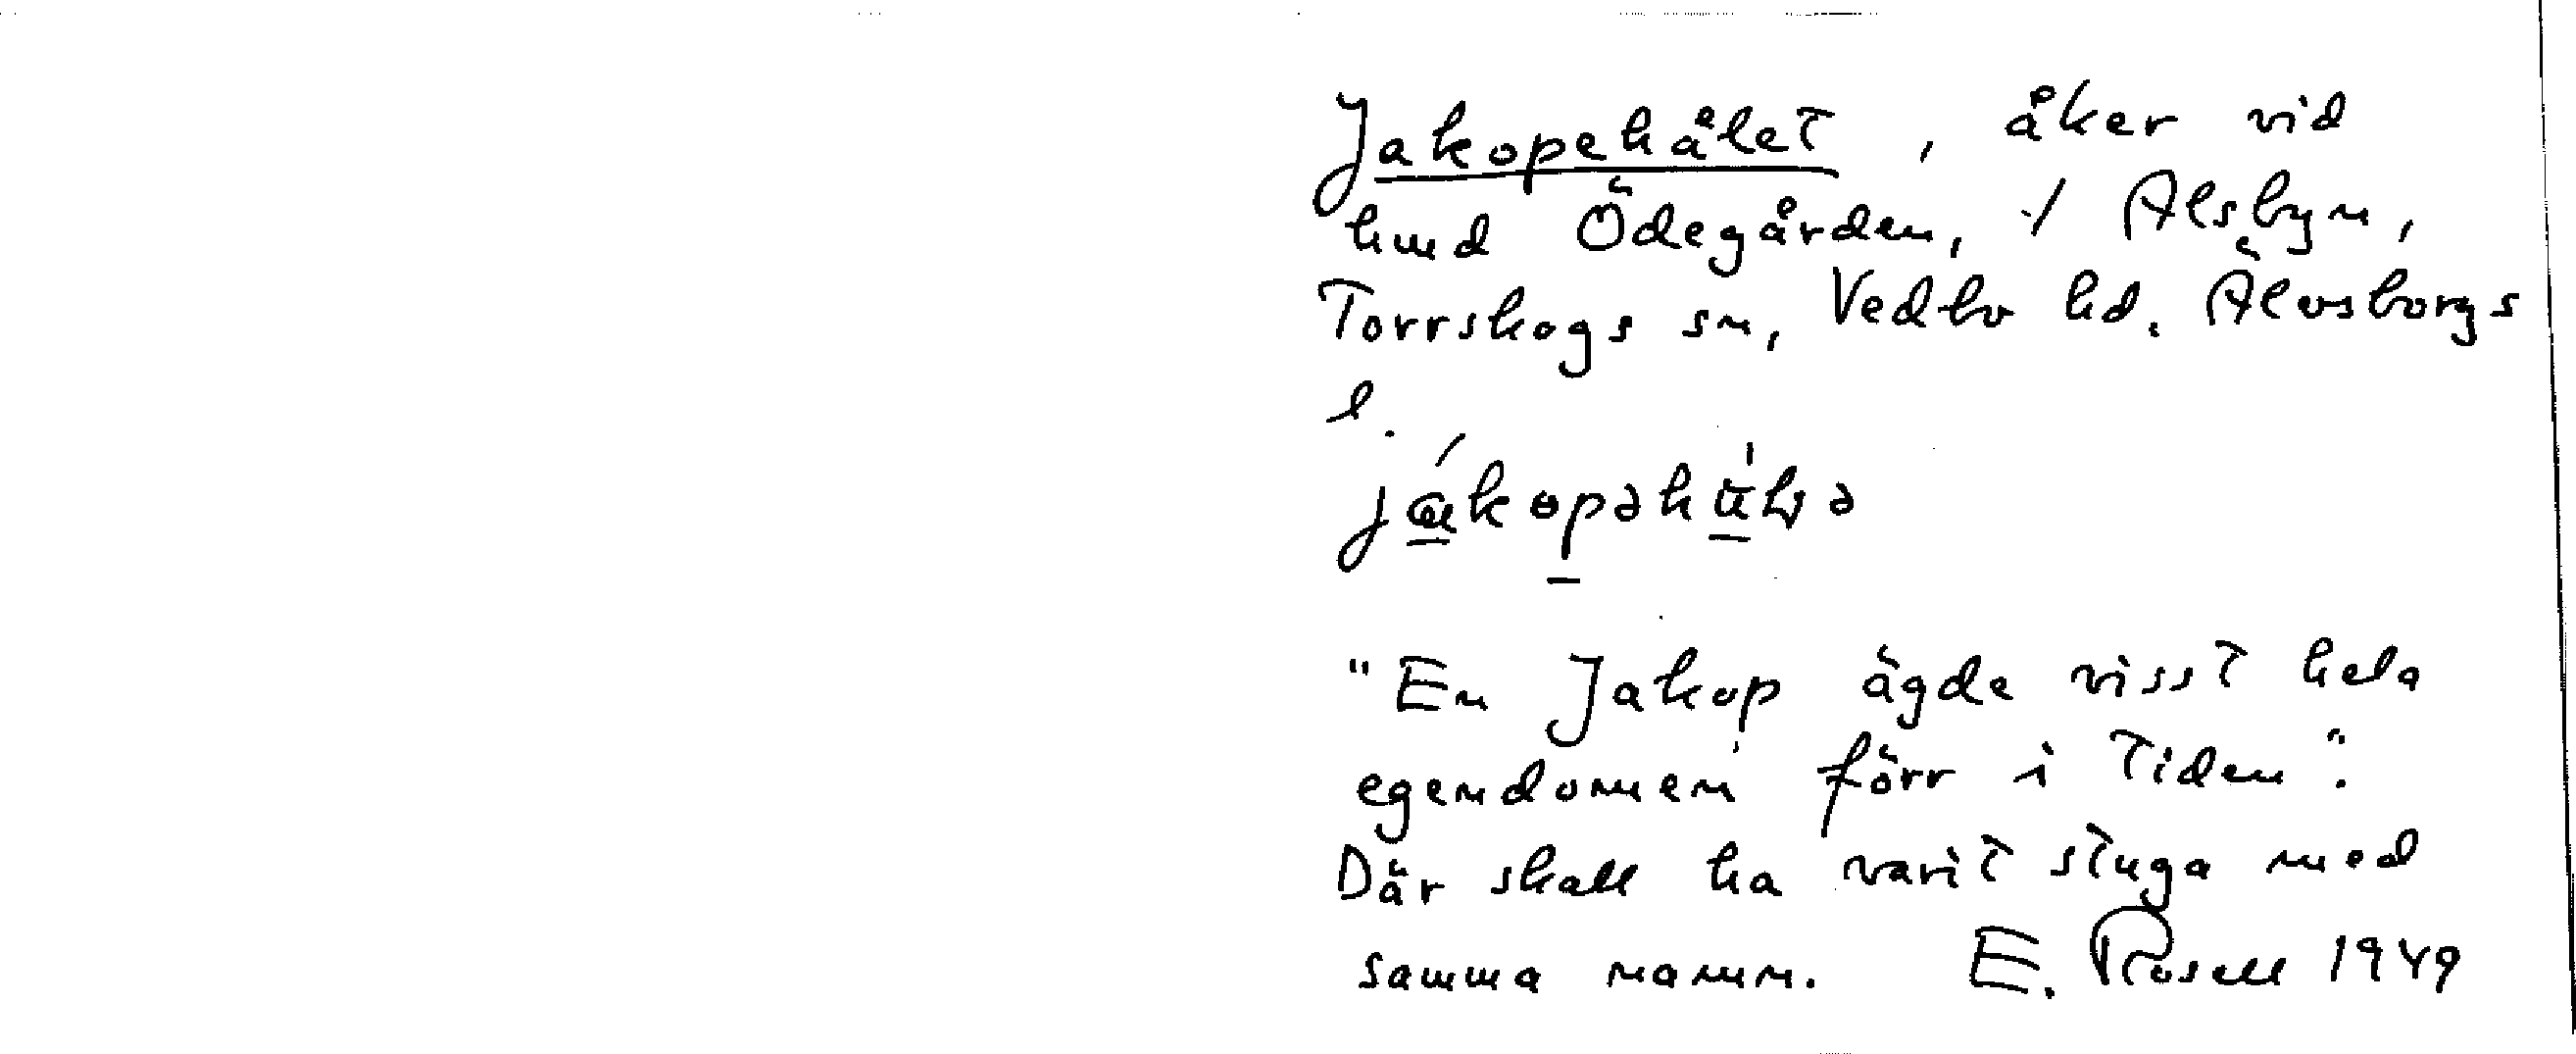 Jakopehålet, åker vid
hmd Ödegården, / Alsbyn,
Torrskogs sn, Vedbo hd. Älvsborgs
l.
"En Jakop ägde visst hela
egendomen förr i tiden".
Där skall ha varit stuga med
samma namn. E. Rosell 1949